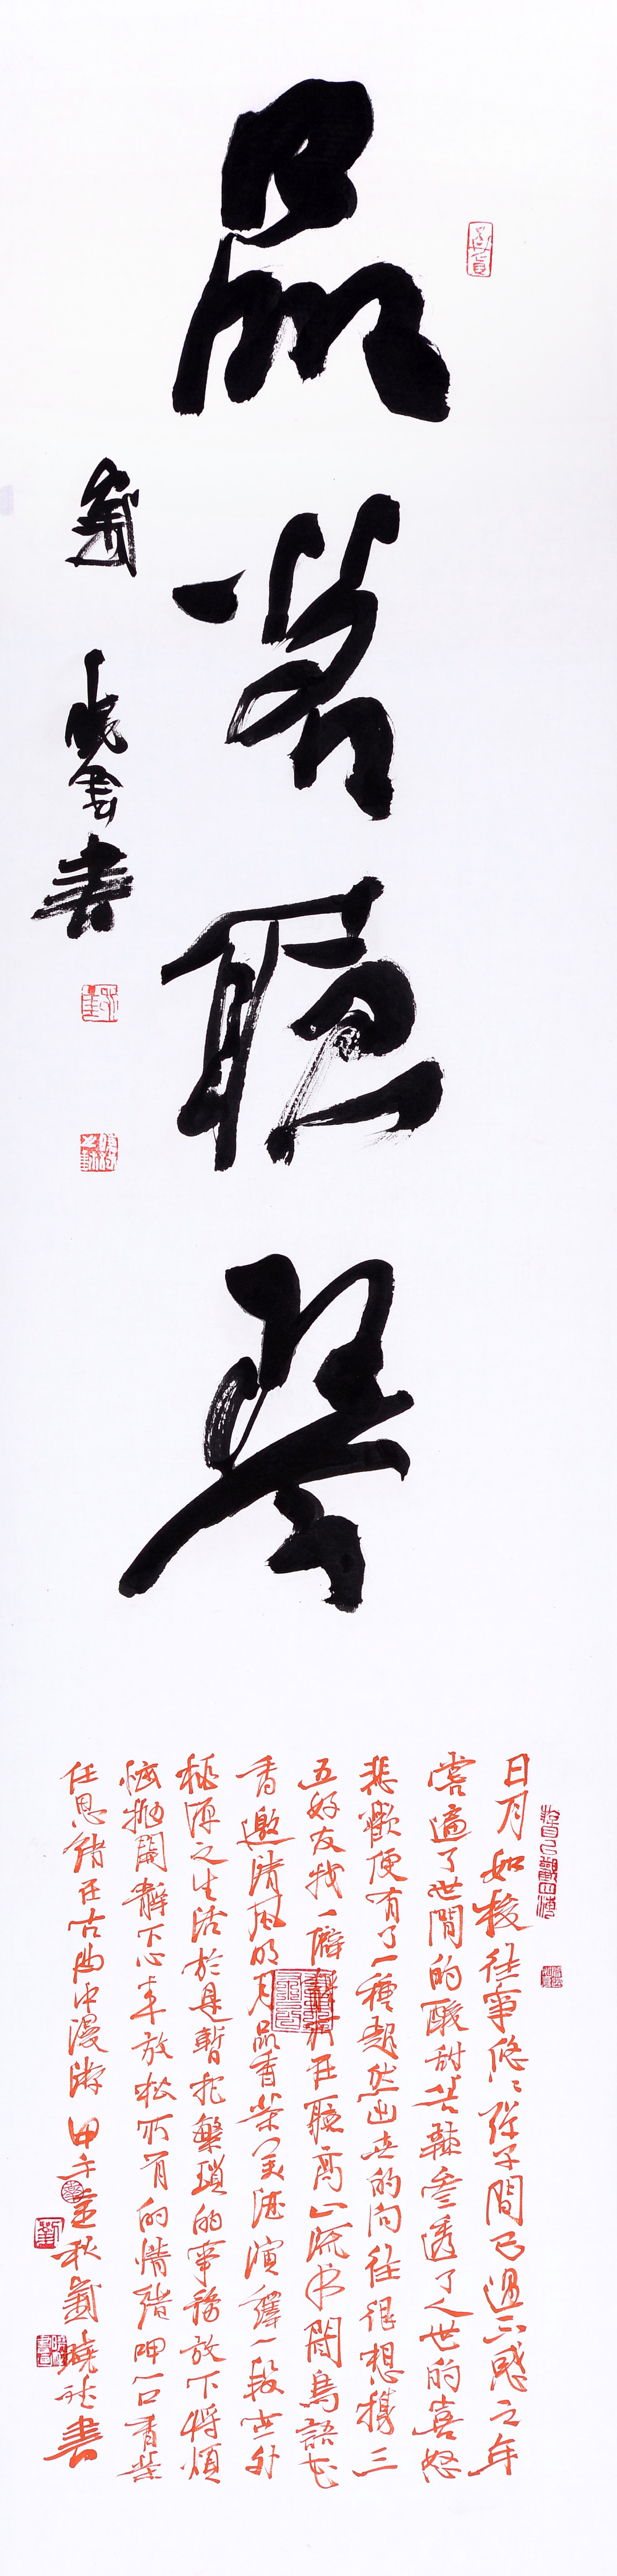 品茗聽琴
戴曉雲書
日月如梭往事悠悠彈子間已過不惑之年
嘗遍了世間的酸甜苦辣參透了人世的喜怒
悲歡便有了一種超然出世的向往很想攜三
五好友找一僻 在聽高山流水聞鳥語花
香邀清風明月品香茶美酒演繹一段世外
桃源之生活於是暫抛繁瑣的事務放下將煩
惱拋開離下心來放松所有的情緒呷一口香茶
任思緒在古曲中漫游甲午孟秋戴曉 書